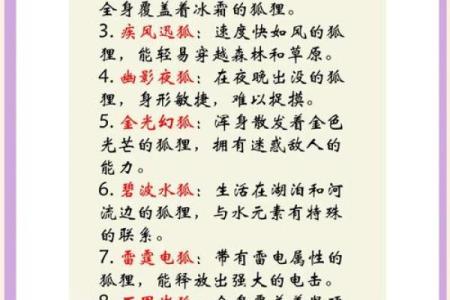 全身覆盖着冰霜的狐狸。
3. 疾风迅狐：速度快如风的狐
狸，能轻易穿越森林和草原。
4. 幽影夜狐：在夜晚出没的狐
狸，身形敏捷，难以捉摸。
5. 金光幻狐：浑身散发着金色
光芒的狐狸，拥有迷惑敌人的
能力。
6. 碧波水狐：生活在湖泊和河
流边的狐狸，与水元素有特殊
的联系。
7. 雷霆电狐：带有雷电属性的
狐狸，能释放出强大的电击。